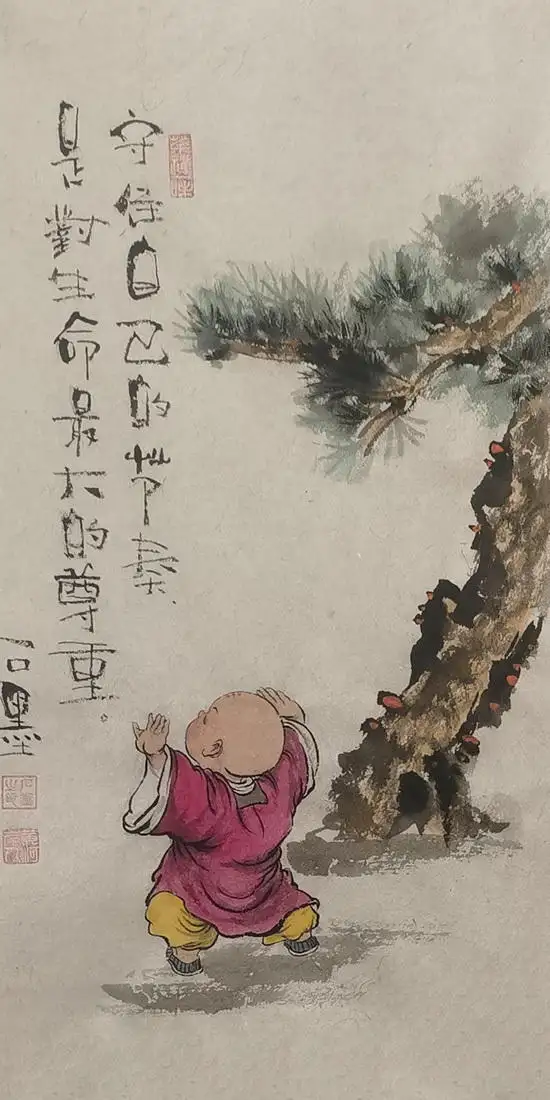 守住自己的节奏.
是對生命最大的尊重。
石墨